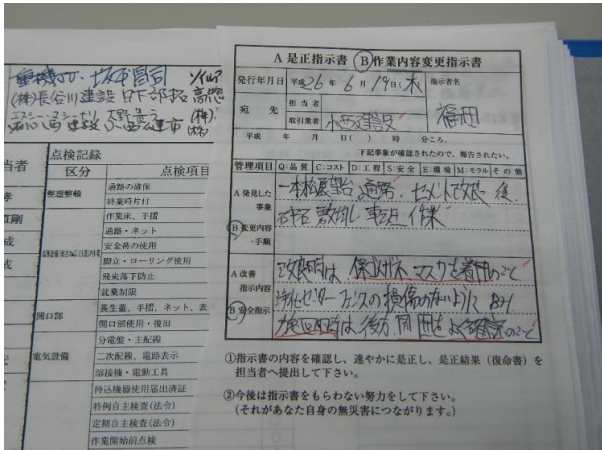 重機オペ. 坂本昌司
(株)長谷川建設 日下部拓
点検記録
区分 点検項目
整理整頓
通路の確保
終業時片付
作業床、手摺
通路・ネット
安全帯の使用
脚立・ローリング使用
飛来落下防止
就業制限
開口部
養生蓋、手摺、ネット、表
開口部使用・復旧
電気設備
分電盤・主配線
二次配線、電路表示
溶接機・電動工具
持込機械使用届出済証
特例自主検査(法令)
定期自主検査(法令)
作業開始前点検
A 是正指示書 Ⓑ作業内容変更指示書
発行年月日 平成26年 6月 19日(木) 指示者名
福田
宛先 担当者
取引業者 小西建設
平成 年 月 日( ) 時 分ころ、
下記事象が確認されたので、報告されたい。
管理項目 Q:品質 C:コスト D:工程 S:安全 E:環境 M:モラル その他
A 発見した事象
Ⓑ 変更内容・手順
セメントで改良後
砕石敷均し 転圧作業
A 改善指示内容
Ⓑ 安全指示
改良時は、保護メガネ、マスクを着用のこと
浄化センターフェンスの損傷のないように
旋回時は後方、周囲をよく確認のこと
①指示書の内容を確認し、速やかに是正し、是正結果(復命書)を
担当者へ提出して下さい。
②今後は指示書をもらわない努力をして下さい。
(それがあなた自身の無災害につながります。)